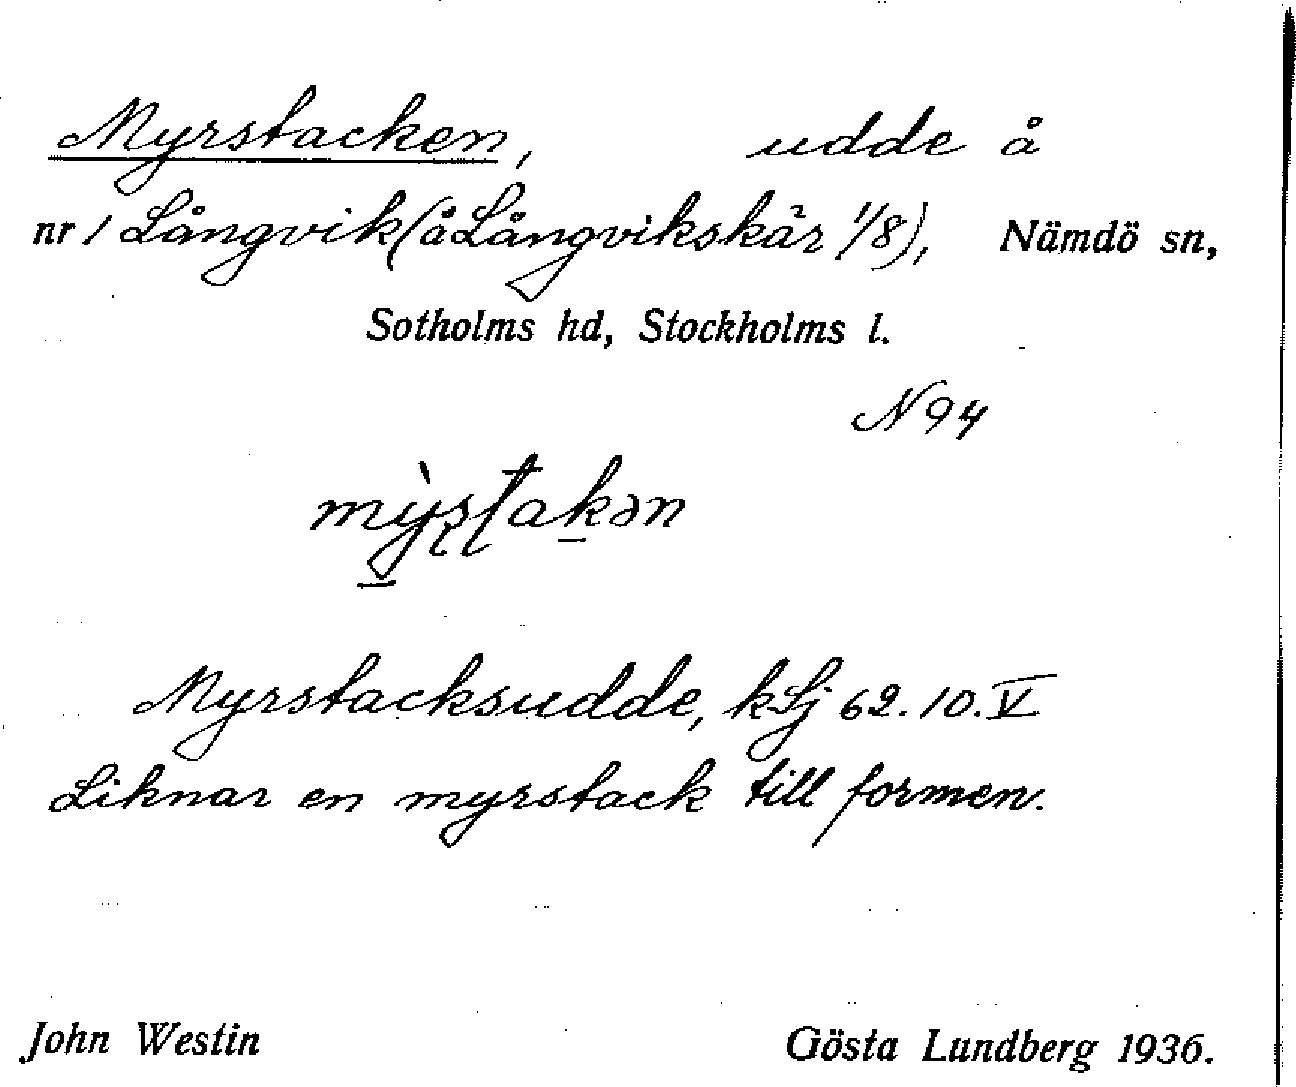 Myrstacken, udde å
nr 1 Långvik (å Långvikskär 1/8), Nämdö sn,
Sotholms hd, Stockholms l.
N 94
Myrstacksudde, kSj 62.10.V
Liknar en myrstack till formen.
John Westin Gösta Lundberg 1936.